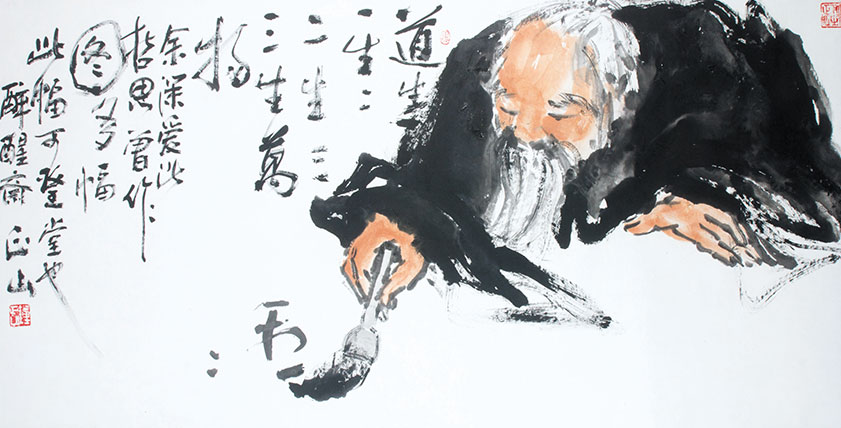 道生
一〻生二
二生三
三生萬
物
余深爱此
哲思曾作
图多幅
此幅可登堂也
醉醒斋 正山